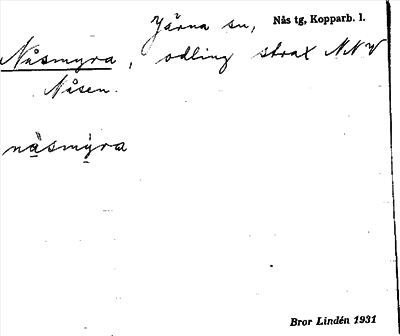 Järna sn, Nås tg, Kopparb. l.
Nåsmyra, odling strax NNV
Nåsen.
nåsmýra
Bror Lindén 1931